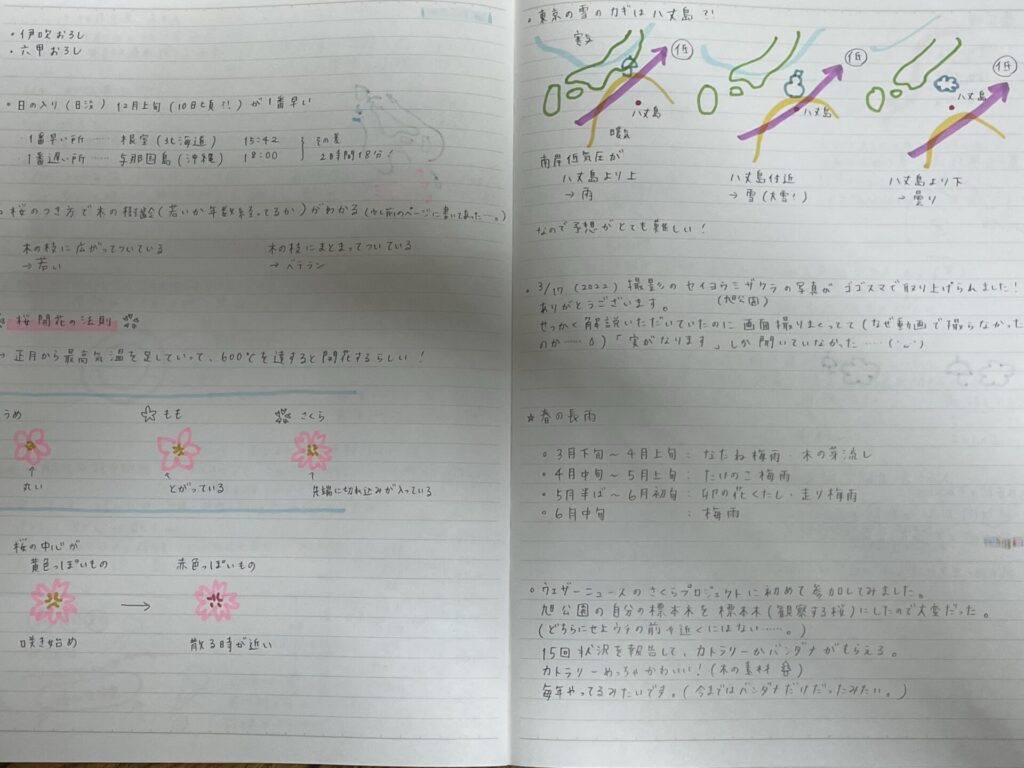 ・伊吹おろし
・六甲おろし
・日の入り(日没) 12月上旬(10日頃?!)が1番早い
1番早い所……根室(北海道) 15:42
1番遅い所……与那国島(沖縄) 18:00
その差
2時間18分!
桜のつき方で木の樹齢(若いか年数経ってるか)がわかる(少し前のページに書いてあった…。)
木の枝に広がってついている
→若い
木の枝にまとまってついている
→ベテラン
桜開花の法則
正月から最高気温を足していって、600℃を達すると開花するらしい!
うめ
もも
さくら
↑
丸い
↑
とがっている
↑
先端に切れ込みが入っている
桜の中心が
黄色っぽいもの
赤色っぽいもの
→
咲き始め
散る時が近い
・東京の雪のカギは八丈島?!
寒気
低
八丈島
暖気
低
八丈島
低
八丈島
南岸低気圧が
八丈島より上
→雨
八丈島付近
→雪(大雪!)
八丈島より下
→曇り
なので予想がとても難しい!
・3/17(2022)撮影のセイヨウミザクラの写真がゴゴスマで取り上げられました!
(旭公園)
ありがとうございます。
せっかく解説いただいていたのに画面撮りまくってて(なぜ動画で撮らなかった
のか……)「実がなります」しか聞いていなかった……(・ω・`)
☆春の長雨
○3月下旬〜4月上旬:なたね梅雨・木の芽流し
○4月中旬〜5月上旬:たけのこ梅雨
○5月半ば〜6月初旬:卯の花くたし・走り梅雨
○6月中旬:梅雨
○ウェザーニュースのさくらプロジェクトに初めて参加してみました。
旭公園の自分の標本木を標本木(観察する桜)にしたので大変だった。
(どちらにせよウチの前や近くにはない……。)
15回状況を報告して、カトラリーかバンダナがもらえる。
カトラリーめっちゃかわいい!(木の素材)
毎年やってるみたいです。(今まではバンダナだけだったみたい。)